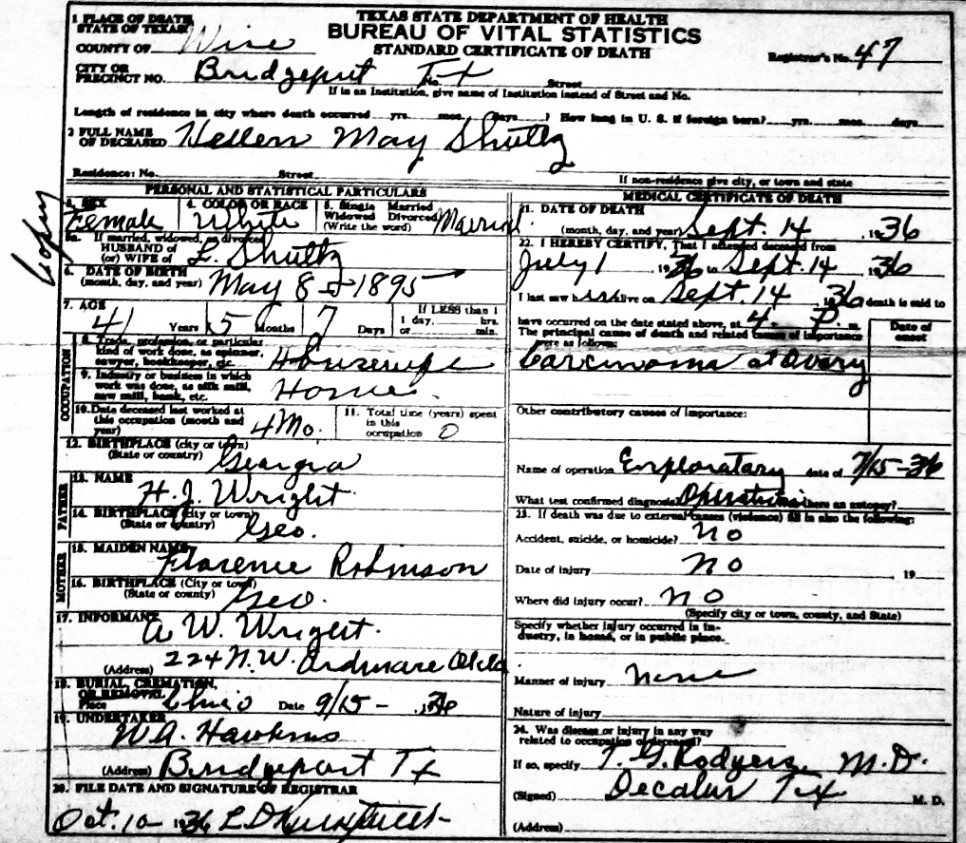 TEXAS STATE DEPARTMENT OF HEALTH
BUREAU OF VITAL STATISTICS
STANDARD CERTIFICATE OF DEATH
Registrar's No. 47
1 PLACE OF DEATH
STATE OF TEXAS
COUNTY OF Wise
CITY OR PRECINCT NO. Bridgeport Tx No. Street
If in an Institution, give name of Institution instead of Street and No.
Length of residence in city where death occurred yrs. mos. days? How long in U. S. if foreign born? yrs. mos. days
2 FULL NAME OF DECEASED Hellen May Shultz
Residence: No. Street If non-residence give city, or town and state
Copy
PERSONAL AND STATISTICAL PARTICULARS
3. SEX Female
4. COLOR OR RACE White
5. Single Married Widowed Divorced (Write the word) Married
5a. If married, widowed, or divorced
HUSBAND of (or) WIFE of L. Shultz
6. DATE OF BIRTH (month, day, and year) May 8 1895
7. AGE 41 Years 5 Months 7 Days If LESS than 1 1 day, hrs. or min.
OCCUPATION
8. Trade, profession, or particular
kind of work done, as spinner,
sawyer, bookkeeper, etc. Housewife
9. Industry or business in which
work was done, as silk mill,
saw mill, bank, etc. Home
10. Date deceased last worked at
this occupation (month and
year) 4 Mo.
11. Total time (years) spent
in this
occupation 0
12. BIRTHPLACE (city or town)
(State or country) Georgia
FATHER
13. NAME H. J. Wright
14. BIRTHPLACE (city or town)
(State or country) Geo.
MOTHER
15. MAIDEN NAME Florence Robinson
16. BIRTHPLACE (City or town)
(State or county) Geo.
17. INFORMANT A W. Wright
(Address) 224 N.W. Ardmore Okla
18. BURIAL, CREMATION,
OR REMOVAL
Place Chico Date 9/15- 1936
19. UNDERTAKER W A. Hawkins
(Address) Bridgeport Tx
20. FILE DATE AND SIGNATURE OF REGISTRAR
Oct. 10 - 1936
MEDICAL CERTIFICATE OF DEATH
21. DATE OF DEATH
(month, day, and year) Sept. 14 1936
22. I HEREBY CERTIFY, That I attended deceased from
July 1 1936 to Sept. 14 1936
I last saw alive on Sept. 14 1936 death is said to
have occurred on the date stated above, at 4 P m.
The principal causes of death and related causes of importance
were as follows: Date of onset
Carcinoma of Overy
Other contributory causes of importance:
Name of operation Exploratary date of 7/15-36
What test confirmed diagnosis? Operation Was there an autopsy?
23. If death was due to external causes (violence) fill in also the following:
Accident, suicide, or homicide? No
Date of injury No 19
Where did injury occur? No
(Specify city or town, county, and State)
Specify whether injury occurred in in-
dustry, in home, or in public place.
Manner of injury None
Nature of injury
24. Was disease or injury in any way
related to occupation of deceased?
If so, specify T. G. Rodgers M.D.
(Signed) Decatur Tex M. D.
(Address)